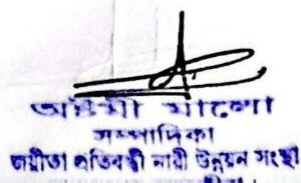 অষ্টমী মালো
সম্পাদিকা
জয়ীতা প্রতিবন্ধী নারী উন্নয়ন সংস্থা